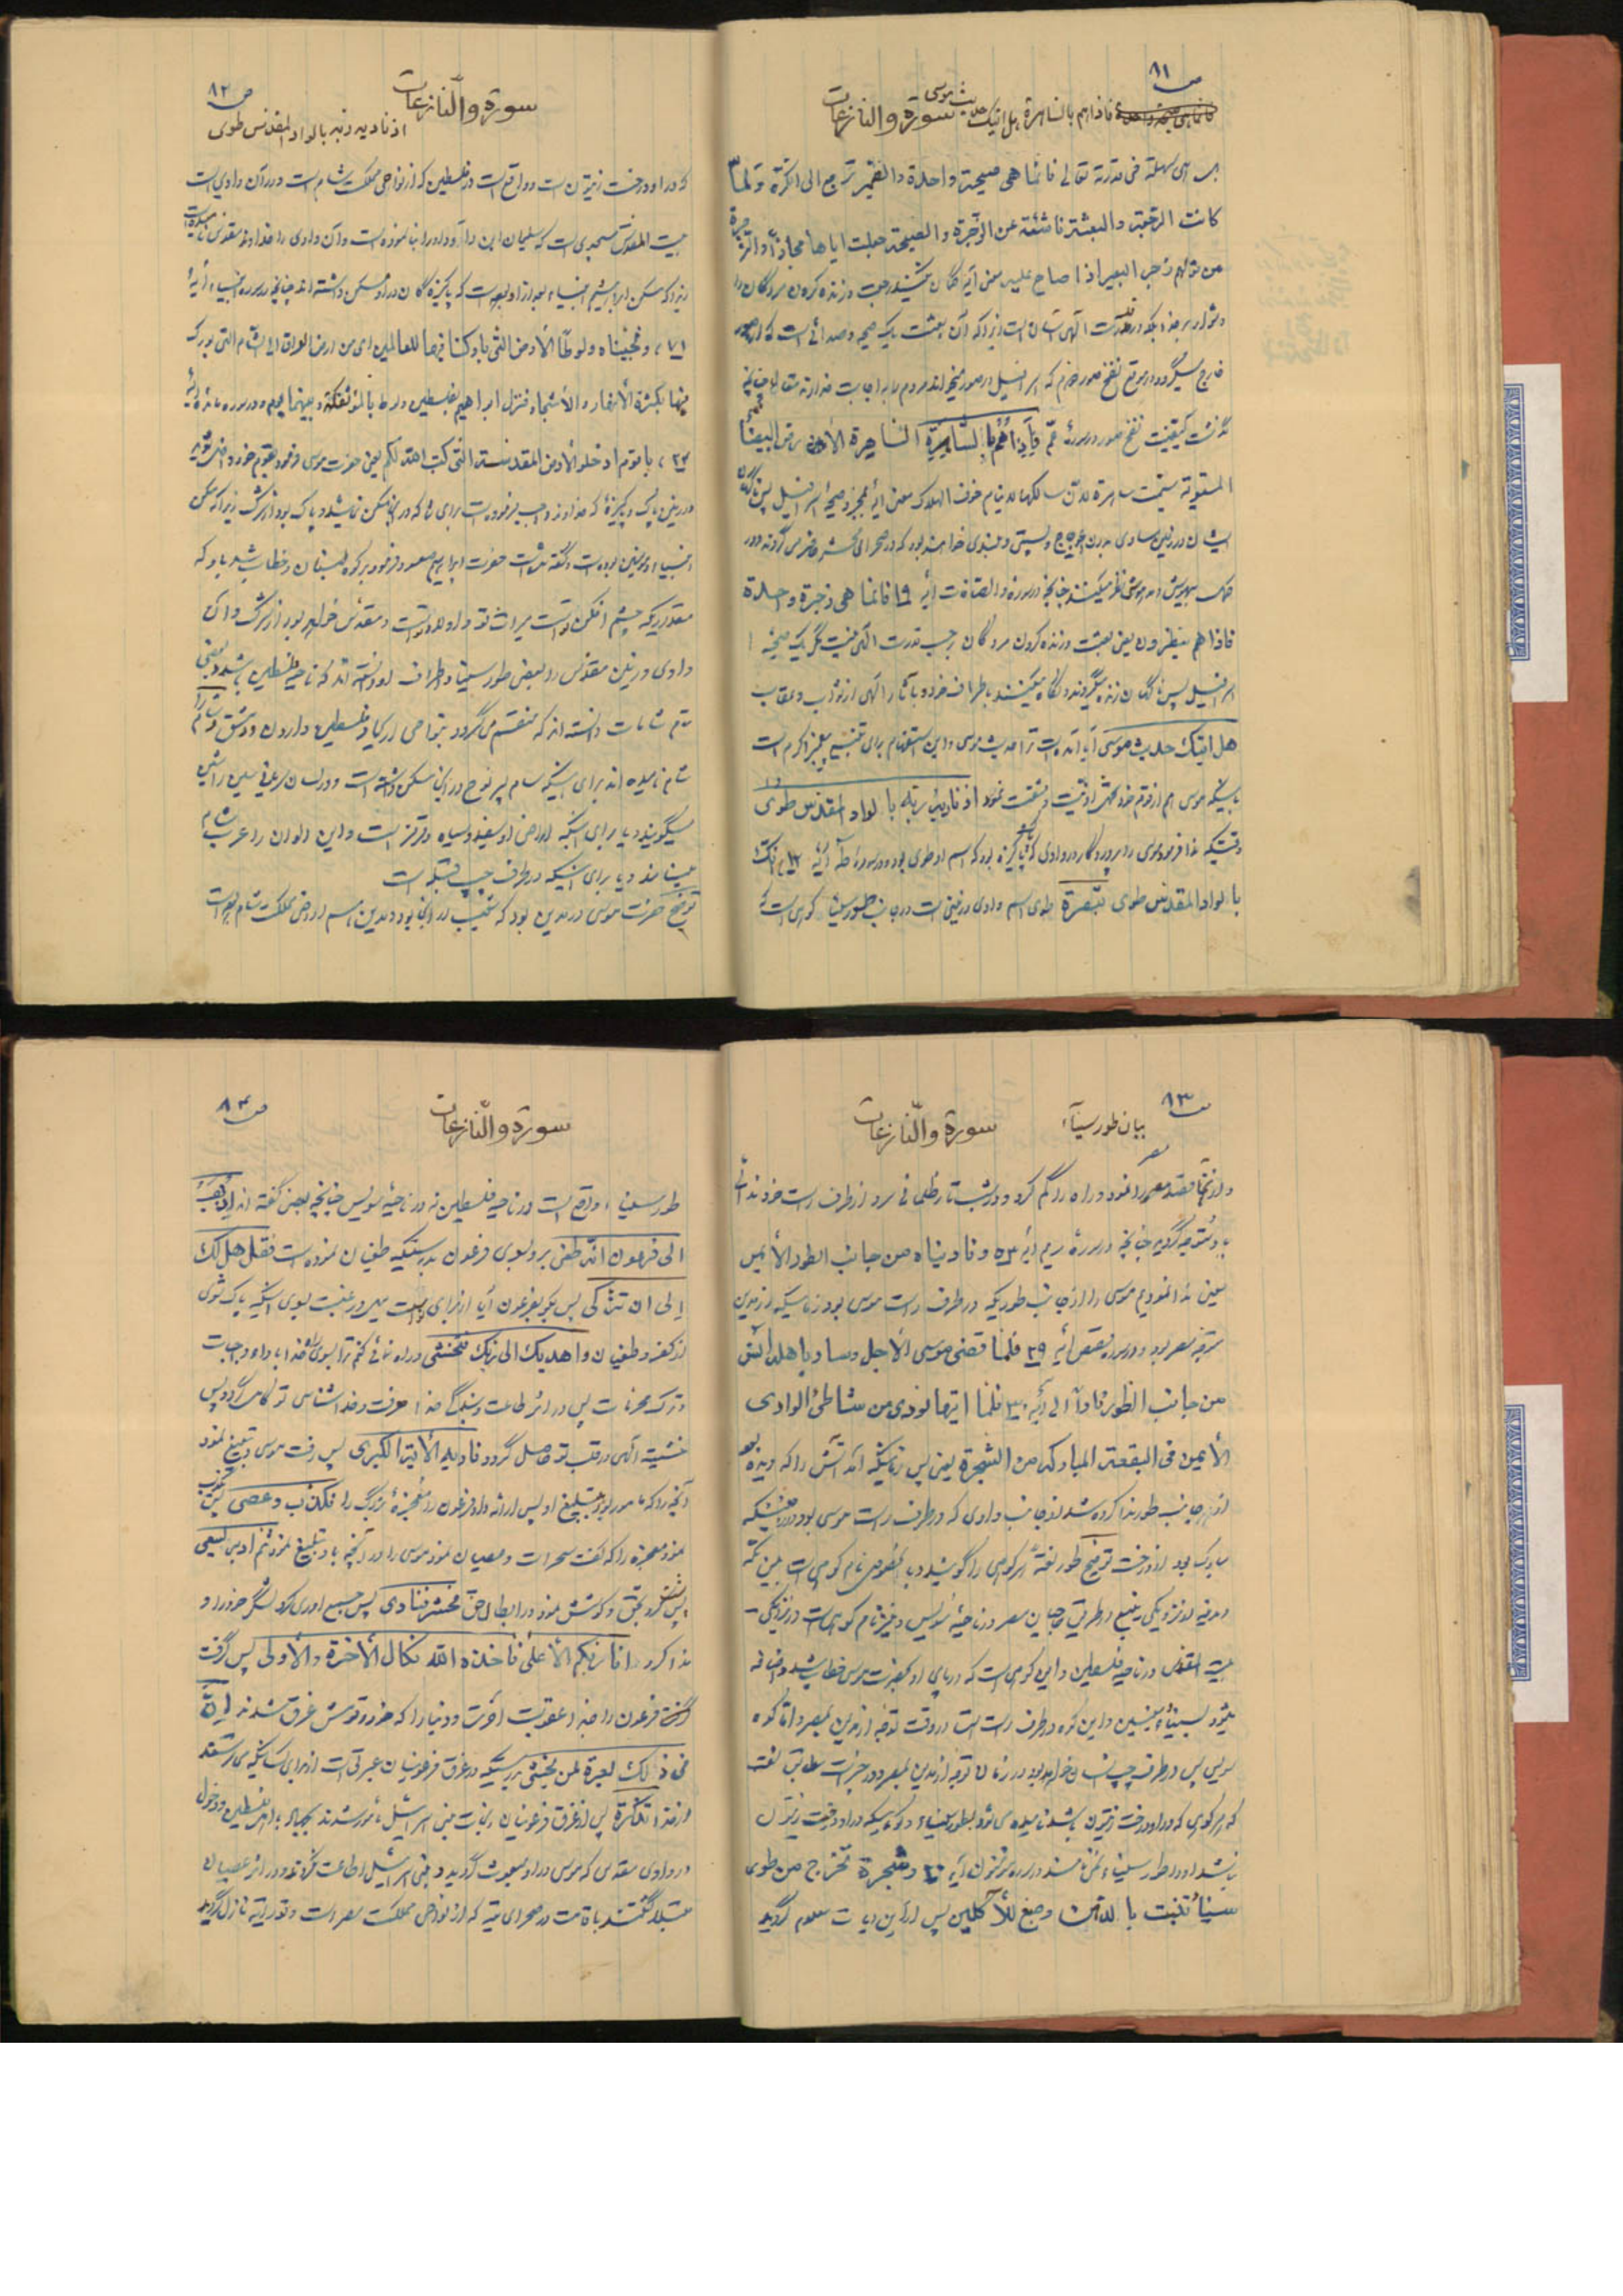 ص ۸۱
فاذاهم بالساهرة هل اتیک حدیث موسی سورة والنازعات
ای سهلة فی قدرته تعالی فانما هی صیحة واحدة والضمیر ترجع الی الکرة ولما
کانت الرجفة والبعثة ناشئة عن الزجرة والصیحة جعلت ایاها مجازاً والزجرة
من قولهم زجر البعیر اذا صاح علیه یعنی آیه گمان میکنید رجعت و زنده کردن مردگان را
دشوار بر خدا بلکه در قدرت الهی آسان است زیرا که آن بعثت یک صیحه و صدائی است که از صور
خارج میگردد در موقع نفخ صور دوم که اسرافیل در صور میخواند مردم را به اجابت خدا
گذشت کیفیت نفخ صور در سوره عم فاذا هم بالساهرة الساهرة الأرض البیضاء
المستویة سمیت ساهرة لأن سالکها لا ینام خوف الهلاک یعنی
ایشان در زمین مساوی بدون اعوجاج و پستی و بلندی خواهند بود که در صحرای محشر حاضر می گردند و در
نظر میکنند چنانچه در سوره والصافات آیه ۱۹ فانما هی زجرة واحدة
فاذا هم ینظرون یعنی بعثت و زنده کردن مردگان بحسب قدرت الهی نیست مگر یک صیحه
اسرافیل پس ناگهان زنده میگردند و نگاه میکنند باطراف خود و بآثار الهی از ثواب و عقاب
هل اتیک حدیث موسی آیا آمده است ترا حدیث موسی و این استفهام برای تنبیه پیغمبر اکرم است
باینکه موسی هم از قوم خود اذیت و مشقت نمود اذ نادیه ربه بالواد المقدس طوی
وقتیکه ندا فرمود موسی را پروردگار در وادی پاکیزه بود که اسم او طوی بود و در سوره طه آیه ۱۲ انک
بالواد المقدس طوی تبصرة طوی اسم وادی و زمین است در جانب طور سینا کوهی است
ص ۸۲
سورة والنازعات
اذ نادیه ربه بالواد المقدس طوی
که در او درخت زیتون است و واقع است در فلسطین که از نواحی مملکت شام است و در آن وادی است
بیت المقدس مسجدی است که سلیمان ابن داود او را بنا نموده است و آن وادی را خداوند مقدس نامیده است
زیرا که مسکن ابراهیم و انبیاء بعد از او بوده است که پاکیزه گان در او مسکن داشته اند چنانچه در سوره انبیاء آیه
۷۱ و نجیناه ولوطاً الی الأرض التی بارکنا فیها للعالمین ای من ارض العراق الی الشام التی بورک
فیها بکثرة الأنهار والأشجار فنزل ابراهیم بفلسطین ولوط بالمؤتفکة وبینهما یوم و در سوره مائده آیه
۲۴ یا قوم ادخلوا الأرض المقدسة التی کتب الله لکم یعنی حضرت موسی فرمود بقوم خود داخل شوید
در زمین پاک و پاکیزه که خداوند واجب فرموده است برای شما که در او مسکن نمائید و پاک بود از شرک زیرا که مسکن
انبیاء و مؤمنین بوده است و گفته شده است حضرت ابراهیم صعود فرمود بر کوه لبنان و خطاب شد باو که
مقداریکه چشم انداز تو است میراث تو و اولاد تو است و مقدس خواهد بود از شرک و آن
وادی و زمین مقدس را بعضی طور سینا و اطراف او دانسته اند که ناحیه فلسطین باشد و بعضی
تمام شامات دانسته اند که منقسم می گردد بنواحی اریحا و فلسطین و اردن و دمشق و شام را
شام نامیده اند برای اینکه سام پسر نوح در آنجا مسکن داشته است و در لسان سریانی سین را شین
میگویند و یا برای اینکه اراضی او سفید و سیاه و قرمز است و این الوان را عرب شام
مینامند و یا برای اینکه در طرف چپ قبله است
توضیح حضرت موسی در مدین بود که شعیب در آنجا بود و مدین هم از اراضی مملکت شام بوده است
ص ۸۳
بیان طور سیناء سورة والنازعات
و از آنجا قصد مصر را نمود و راه را گم کرد و در شب تار ظلمانی سرد از طرف راست خود ندائی
باو متوجه گردید چنانچه در سوره مریم آیه ۵۳ و نادیناه من جانب الطور الأیمن
یعنی ندا نمودیم موسی را از جانب طوریکه در طرف راست موسی بود زمانیکه از مدین
متوجه مصر بود و در سوره قصص آیه ۲۹ فلما قضی موسی الأجل وسار باهله آنس
من جانب الطور ناراً الی آیه ۳۰ فلما اتیها نودی من شاطئ الوادی
الأیمن فی البقعة المبارکة من الشجرة یعنی پس زمانیکه آمد آتش را که دیده بود
از جانب طور ندا کرده شد از جانب وادی که در طرف راست موسی بود در زمینیکه
مبارک بود از درخت توضیح طور لغةً هر کوهی را گویند و بالخصوص نام کوهی است بین مکه
و مدینه نزدیکی ینبع در طریق حجاج مصر در ناحیه سویس و نیز نام کوهی است در نزدیکی
بیت المقدس در ناحیه فلسطین و این کوهی است که در پای او بحضرت موسی خطاب شد و اضافه
میشود بسیناء و سینین و این کوه در طرف راست است در وقت توجه از مدین بمصر و اما کوه
سویس پس در طرف چپ انسان خواهد بود در زمان توجه از مدین بمصر و در
که هر کوهی که در او درخت زیتون باشد نامیده می شود بطور سیناء و کوهیکه در او درخت زیتون
نباشد او را طور سیناء نمی نامند در سوره مؤمنون آیه ۲۰ و شجرة تخرج من طور
سینا تنبت بالدهن وصبغ للآکلین پس از این آیات معلوم گردید
ص ۸۴
سورة والنازعات
طور سیناء واقع است در ناحیه فلسطین نه در ناحیه سویس چنانچه بعضی گفته اند اذهب
الی فرعون انه طغی برو بسوی فرعون بدرستیکه طغیان نموده است فقل هل لک
الی ان تزکی پس بگو بفرعون آیا از برای تو است میل و رغبت بسوی اینکه پاک شوی
از کفر و طغیان و اهدیک الی ربک فتخشی و راه نمائی کنم ترا بسوی خدا باداء واجبات
و ترک محرمات پس در اثر طاعت و بندگی خدا معرفت و خدا شناسی تو کامل گردد پس
خشیت الهی در قلب تو حاصل گردد فاریه الأیة الکبری پس رفت موسی و تبلیغ نمود
آنچه را که مامور بود بتبلیغ او پس ارائه داد فرعون را معجزه بزرگ را فکذب و عصی پس تکذیب
نمود معجزه را که گفت سحر است و عصیان نمود موسی را در آنچه باو تبلیغ نمود ثم ادبر یسعی
پس پشت کرد بحق و کوشش نمود در ابطال حق فحشر فنادی پس جمع آوری کرد لشگر خود را و
ندا کرد انا ربکم الأعلی فاخذه الله نکال الأخرة والأولی پس گرفت
فرعون را خدا عقوبت آخرت و دنیا را که خود و قومش غرق شدند ان
فی ذلک لعبرة لمن یخشی بدرستیکه در غرق فرعونیان عبرتی است از برای کسانیکه می ترسند
از خدا تذکرة پس از غرق فرعونیان و نجات بنی اسرائیل مامور شدند بجهاد با اهل فلسطین و دخول
در وادی مقدس که موسی در او مبعوث گردید و بنی اسرائیل اطاعت نکردند و در اثر عصیان
مبتلا گشتند باقامت در صحرای تیه که از نواحی مملکت مصر است و توریة نازل گردید